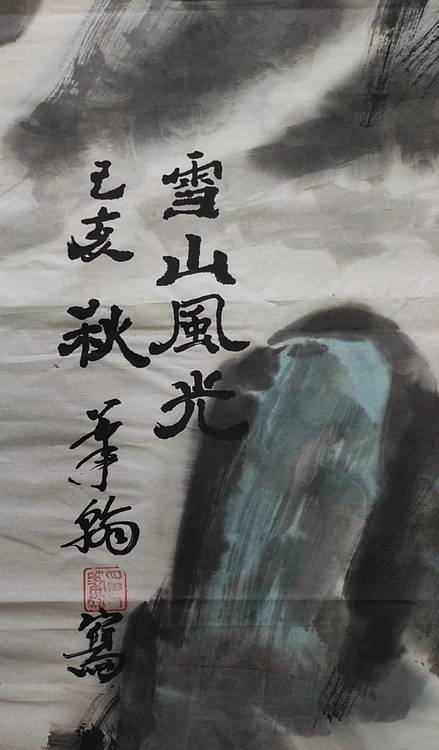 雪山風光
己亥秋翰寫